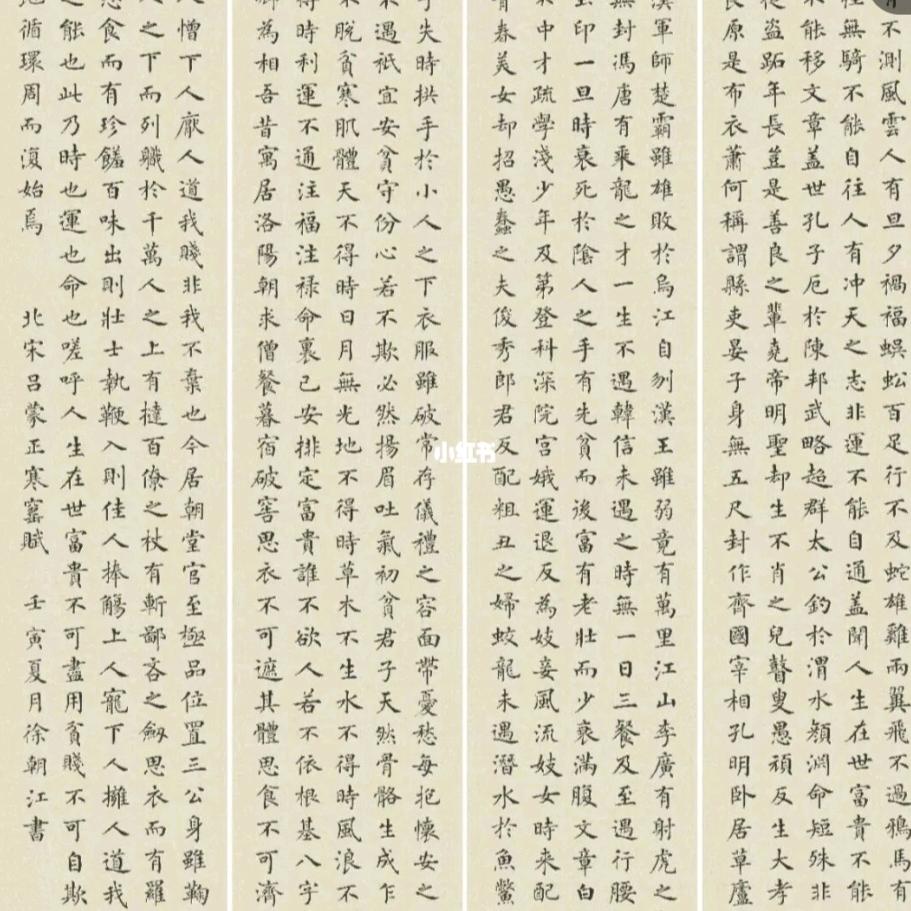 不測風雲人有旦夕禍福蜈蚣百足行不及蛇雄雞兩翼飛不過鴉馬有
程無騎不能自往人有冲天之志非運不能自通蓋聞人生在世富貴不能
不能移文章蓋世孔子厄於陳邦武略超群太公釣於渭水顏淵命短殊非
徒盜跖年長豈是善良之輩堯帝明聖却生不肖之兒瞽叟愚頑反生大孝
良原是布衣蕭何稱謂縣吏晏子身無五尺封作齊國宰相孔明臥居草廬
漢軍師楚霸雖雄敗於烏江自刎漢王雖弱竟有萬里江山李廣有射虎之
無封馮唐有乘龍之才一生不遇韓信未遇之時無一日三餐及至遇行腰
玉印一旦時衰死於陰人之手有先貧而後富有老壯而少衰滿腹文章白
不中才疏學淺少年及第登科深院宮娥運退反為妓妾風流妓女時來配
青春美女却招愚蠢之夫俊秀郎君反配粗丑之婦蛟龍未遇潛水於魚鱉
子失時拱手於小人之下衣服雖破常存儀禮之容面帶憂愁每抱懷安之
未遇祇宜安貧守份心若不欺必然揚眉吐氣初貧君子天然骨骼生成乍
不脫貧寒肌體天不得時日月無光地不得時草木不生水不得時風浪不
得時利運不通注福注祿命裏已安排定富貴誰不欲人若不依根基八字
卿為相吾昔寓居洛陽朝求僧餐暮宿破窖思衣不可遮其體思食不可濟
人憎下人厭人道我賤非我不棄也今居朝堂官至極品位置三公身雖鞠
人之下而列職於千萬人之上有撻百僚之杖有斬鄙吝之劍思衣而有羅
思食而有珍饈百味出則壯士執鞭入則佳人捧觴上人寵下人擁人道我
之能也此乃時也運也命也嗟呼人生在世富貴不可盡用貧賤不可自欺
循環周而復始焉 北宋呂蒙正寒窰賦 壬寅夏月徐朝江書
小红书